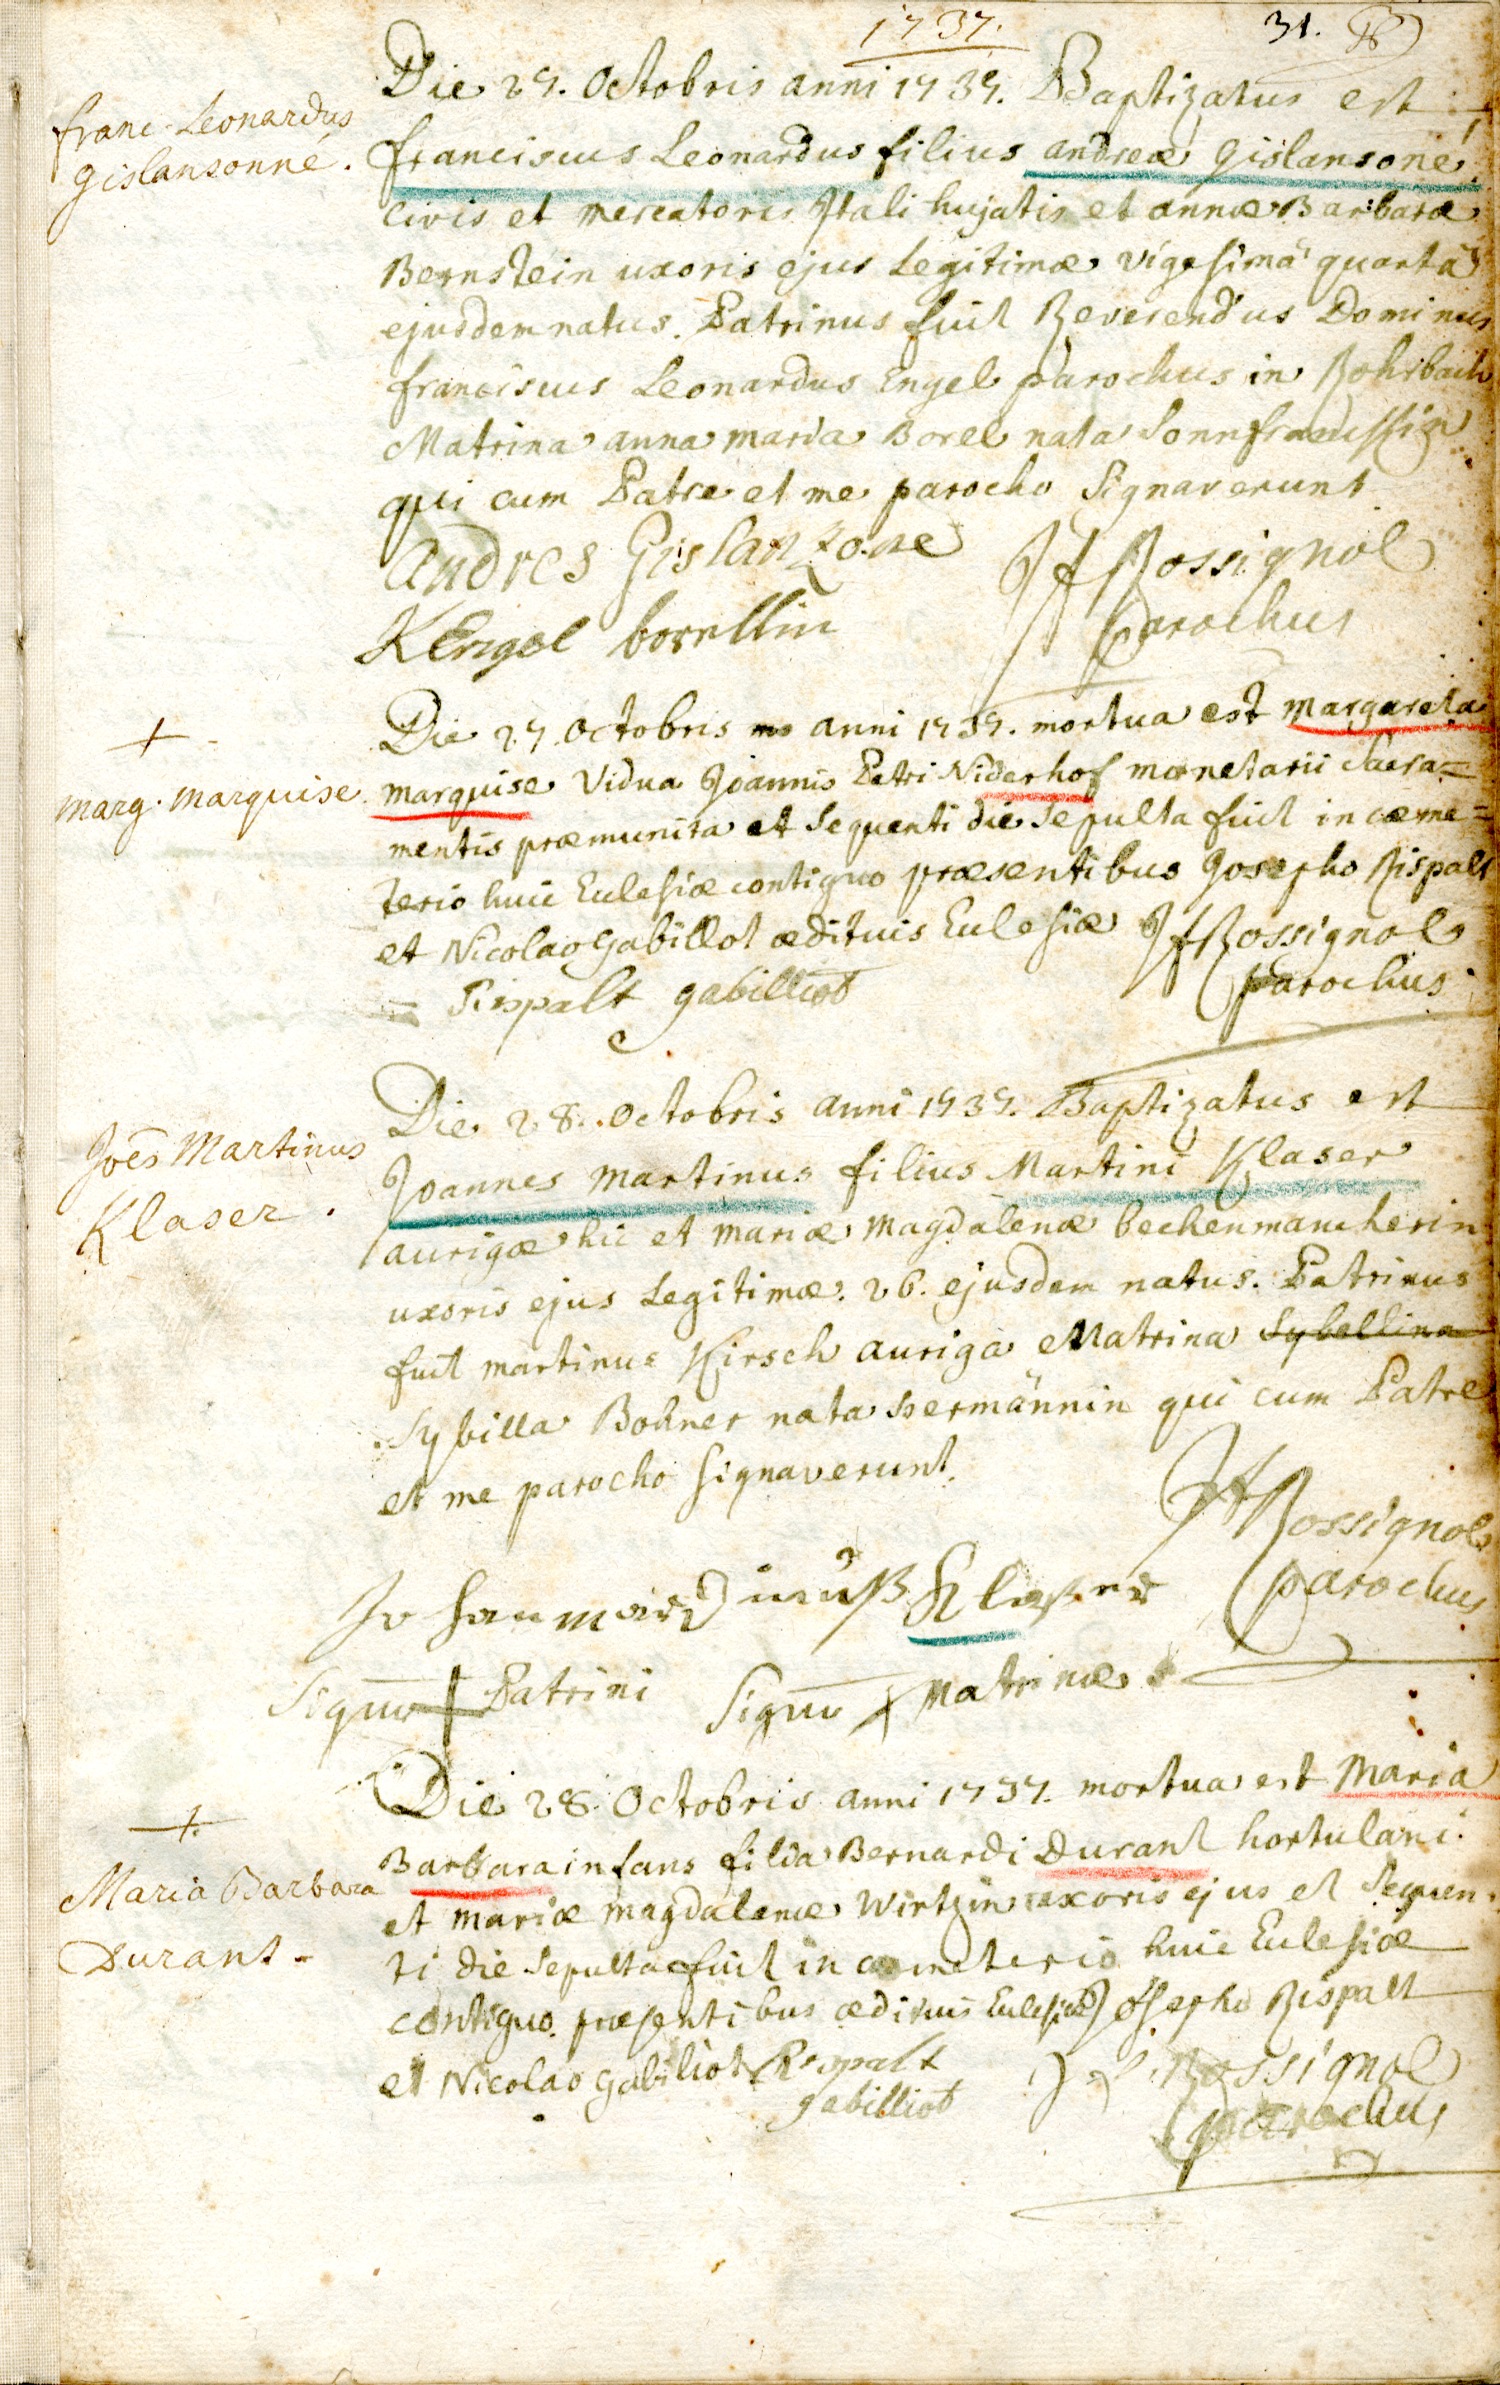 1737.
31.
Franc. Leonardus
Gislansonné.
Die 27. Octobris anni 1737. Baptizatus est
franciscus Leonardus filius andreæ Gislansoné
civis et mercatoris Itali hujatis et annæ Barbaræ
Bernstein uxoris ejus Legitimæ vigesimâ quartâ
ejusdem natus. Patrinus fuit Reverendus Dominus
franciscus Leonardus Engel parochus in Rohrbach
Matrina anna maria Borel nata
qui cum Patre et me parocho Signaverunt
andres Gislanzone JfRossignol
KEngel borellin parochus
+
marg. marquise
Die 27. Octobris anni 1737. mortua est margareta
marquise Vidua Joannis Petri Niderhof monetarii Sacra=
mentis præmunita et Sequenti die Sepulta fuit in cæme=
terio huic Eclesiæ contiguo præsentibus Josepho Rispalt
et Nicolao Gabillot ædituis Eclesiæ JfRossignol
= Rispalt gabilliot parochus
Joēs Martinus
Klaser.
Die 28. Octobris anni 1737. Baptizatus est
Joannes martinus filius Martini Klaser
aurigæ hic et mariæ magdalenæ bechenmancherin
uxoris ejus Legitimæ. 26. ejusdem natus. Patrinus
fuit martinus Kirsch auriga Matrina Sybellina
Sybilla Bohner nata hermännin qui cum Patre
et me parocho Signaverunt.
JfRossignol
parochus
Johan mardinuß Klaser
Signū + Patrini Signū + Matrinæ
+
Maria Barbara
Durant.
Die 28. Octobris anni 1737. mortua est Maria
Barbara infans filia Bernardi Durant hortulani
et mariæ magdalenæ Wirtzin uxoris ejus et Sequen-
ti die Sepulta fuit in cæmeterio huic Eclesiæ
contiguo præsentibus ædituis Eclesiæ Josepho Rispalt
et Nicolao Gabilliot Rispalt JfRossignol
gabilliot parochus